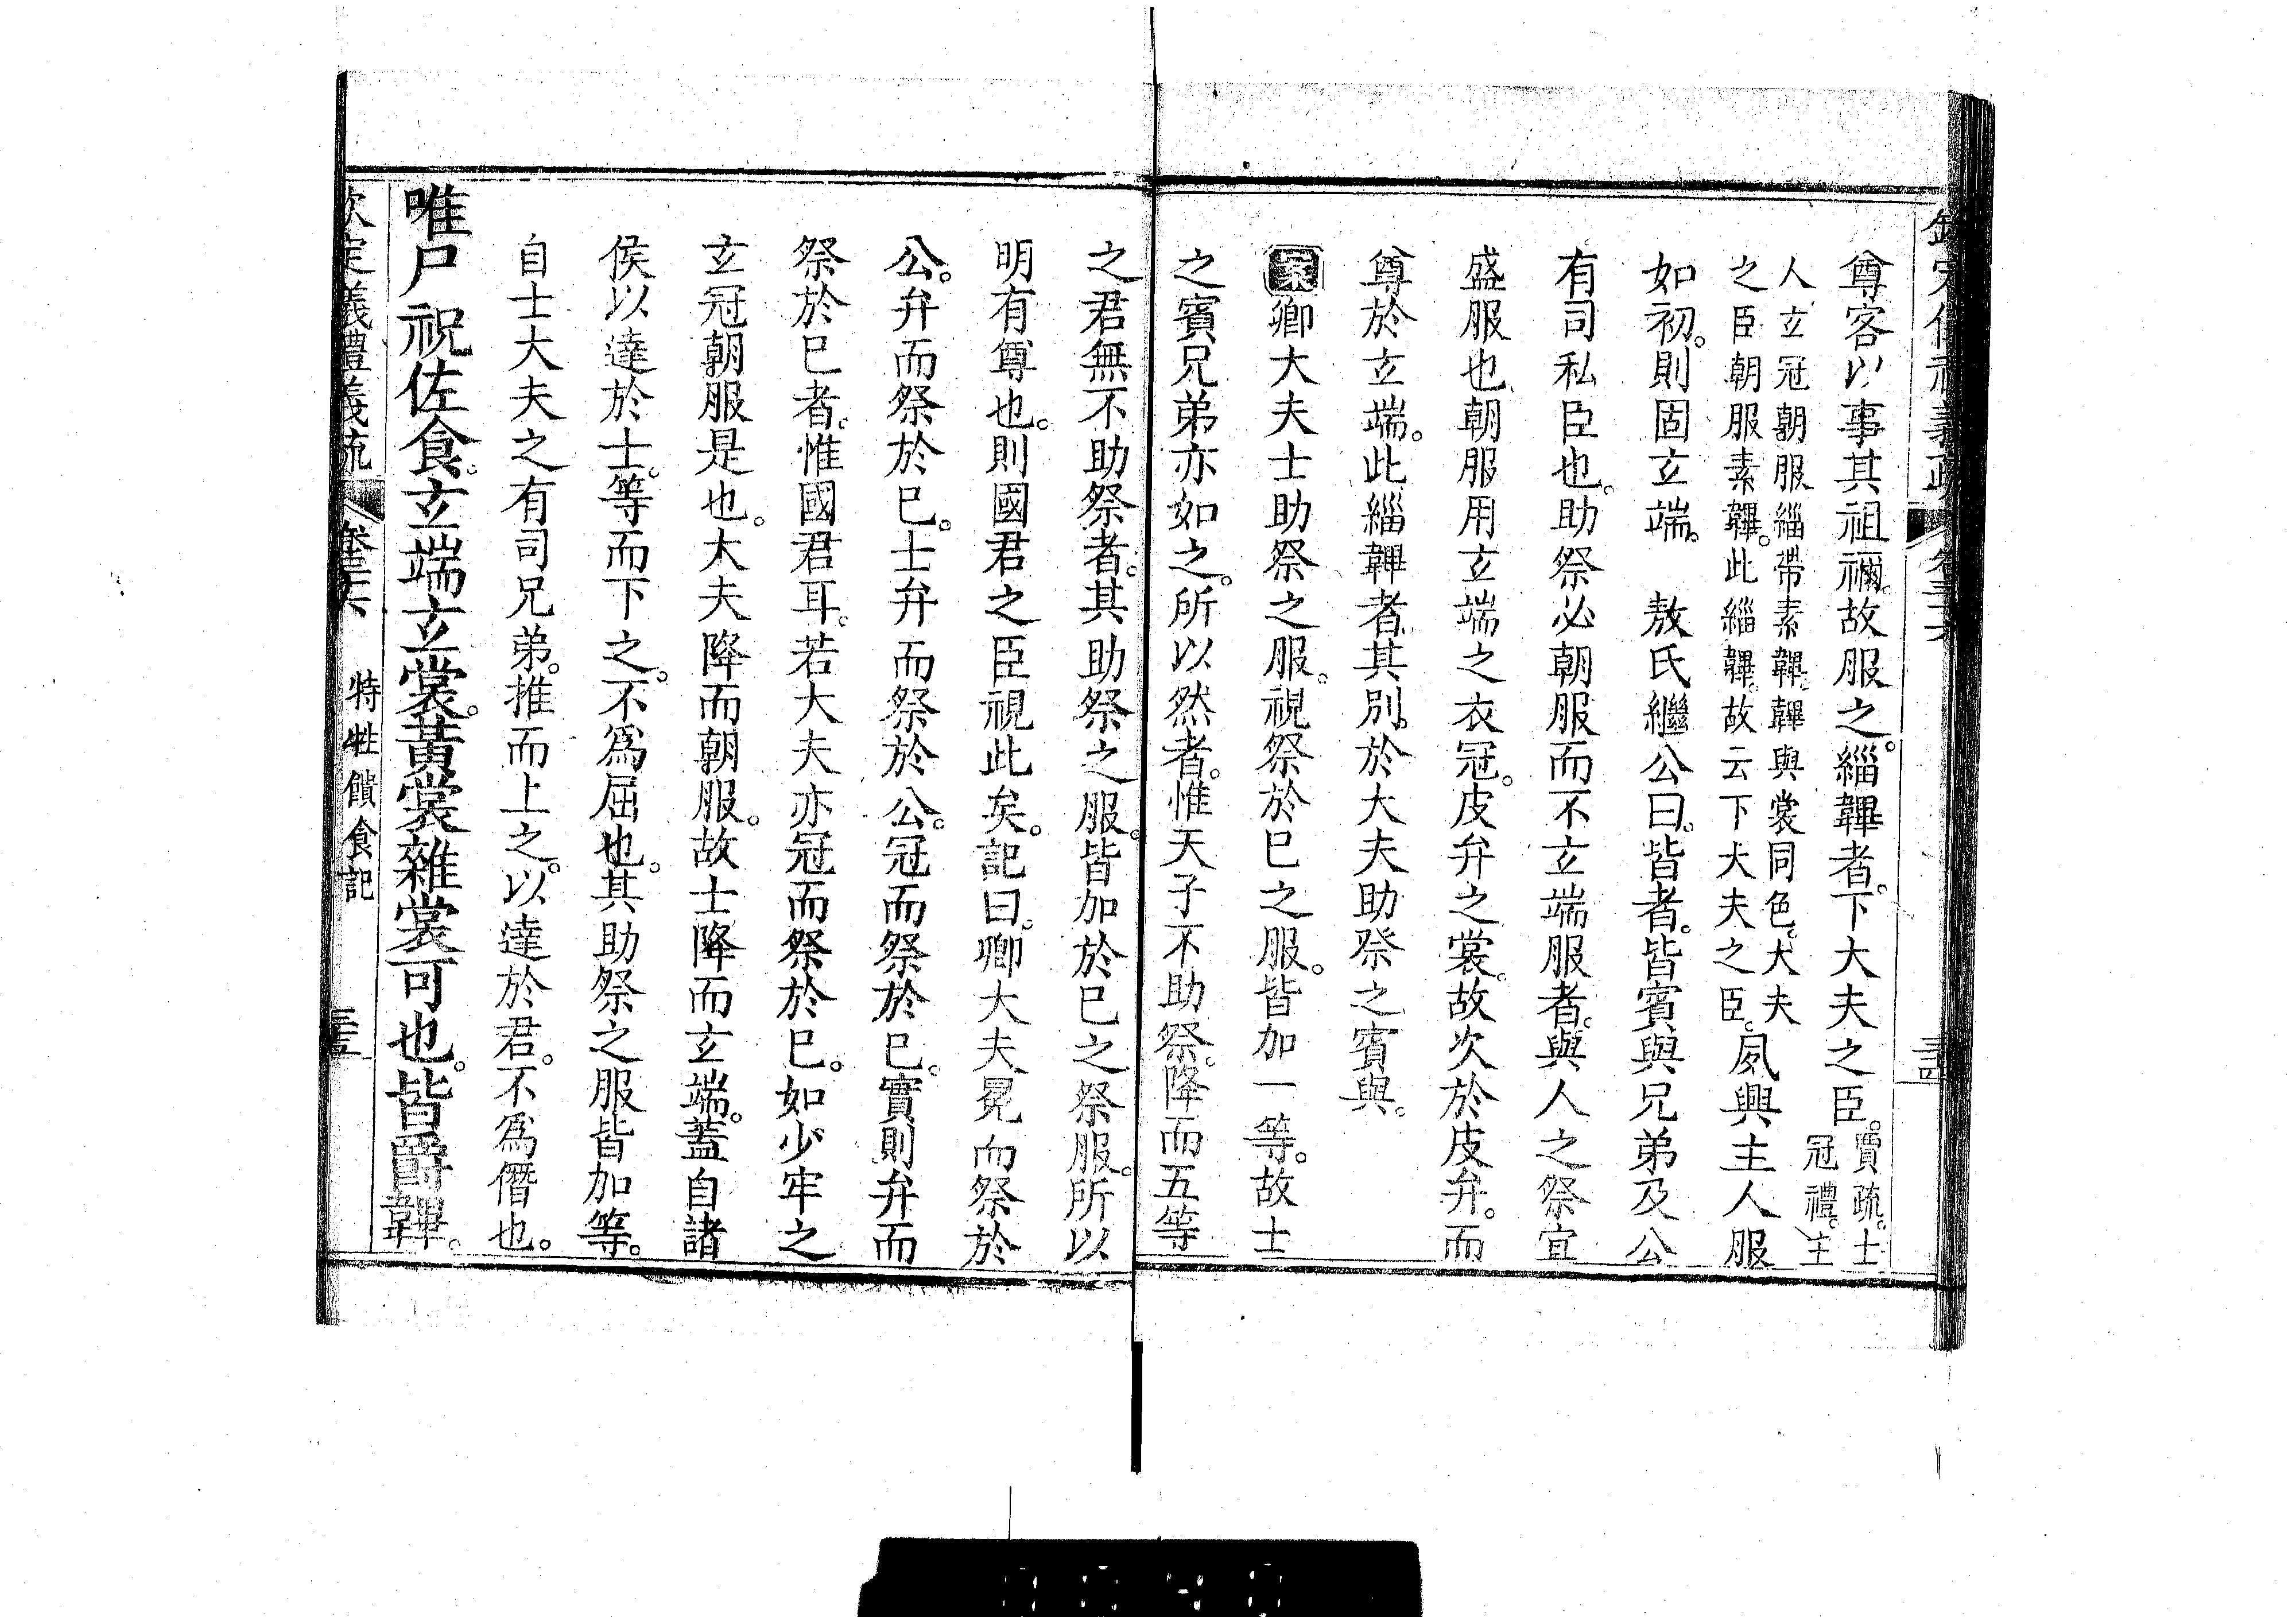 欽定儀禮義疏 卷三六 三四
尊客以事其祖禰。故服之。緇韠者。下大夫之臣。賈疏。士冠禮。主
人玄冠朝服緇帶素韠。韠與裳同色。大夫之臣朝服素韠。此緇韠。故云下大夫之臣。夙興主人服
如初。則固玄端。 敖氏繼公曰。皆者。皆賓與兄弟及公
有司私臣也。助祭必朝服而不玄端服者。與人之祭宜
盛服也。朝服用玄端之衣冠。皮弁之裳。故次於皮弁。而
尊於玄端。此緇韠者。其別。於大夫助祭之賓與。
案卿大夫士助祭之服。視祭於已之服。皆加一等。故士
之賓兄弟亦如之。所以然者。惟天子不助祭。降而五等
之君無不助祭者。其助祭之服。皆加於已之祭服。所以
明有尊也。則國君之臣視此矣。記曰。卿大夫冕而祭於
公。弁而祭於已。士弁而祭於公。冠而祭於已。實則弁而
祭於已者。惟國君耳。若大夫亦冠而祭於已。如少牢之
玄冠朝服是也。大夫降而朝服。故士降而玄端。蓋自諸
侯以達於士。等而下之。不為屈也。其助祭之服皆加等。
自士大夫之有司兄弟。推而上之。以達於君。不為僭也。
唯尸祝佐食。玄端玄裳。黃裳雜裳可也。皆爵韠。
欽定儀禮義疏 卷三六 特牲饋食記 三五